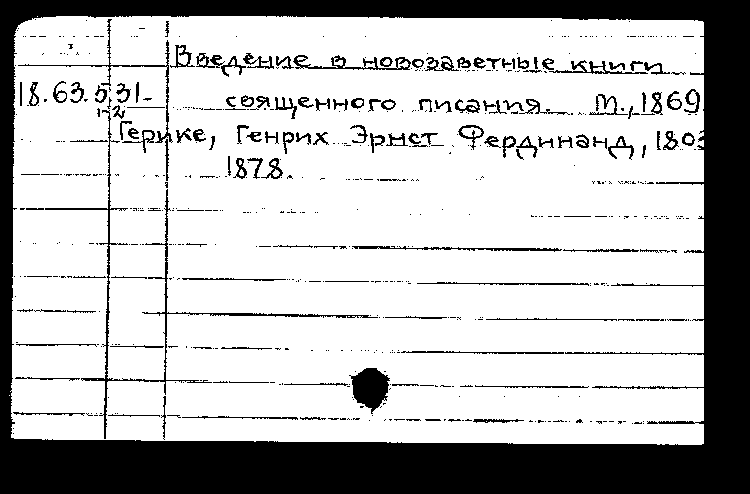 Введение в новозаветные книги
18.63.5.31- священного писания. М., 1869.
1-2
Герике, Генрих Эрнст Фердинанд, 1803
1878.